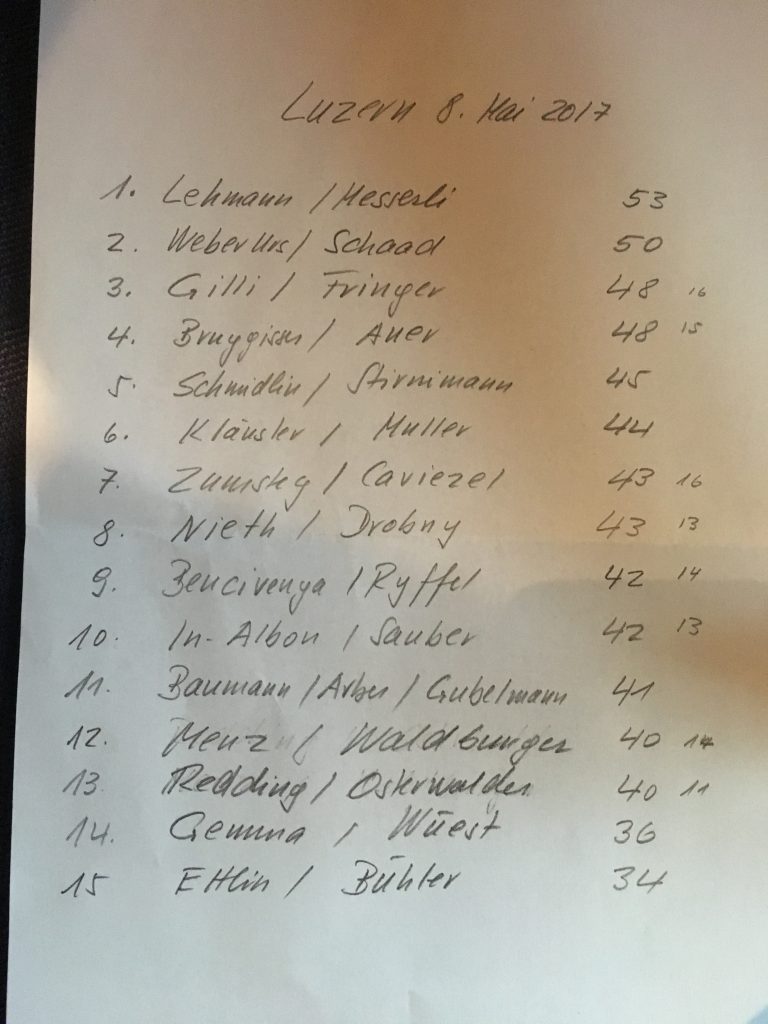 Luzern 8. Mai 2017
1. Lehmann / Messerli 53
2. Weber Urs / Schaad 50
3. Gilli / Fringer 48 16
4. Bruggisser / Auer 48 15
5. Schmidlin / Stirnimann 45
6. Kläusler / Muller 44
7. / Caviezel 43 16
8. Nieth / Drobny 43 13
9. Bencivenga / Ryffel 42 14
10. In-Albon / Sauber 42 13
11. Baumann / / Gubelmann 41
12. Menz / Waldburger 40 14
13. Redding / Osterwalder 40 11
14. Gemma / Wüest 36
15 Ettlin / Bühler 34